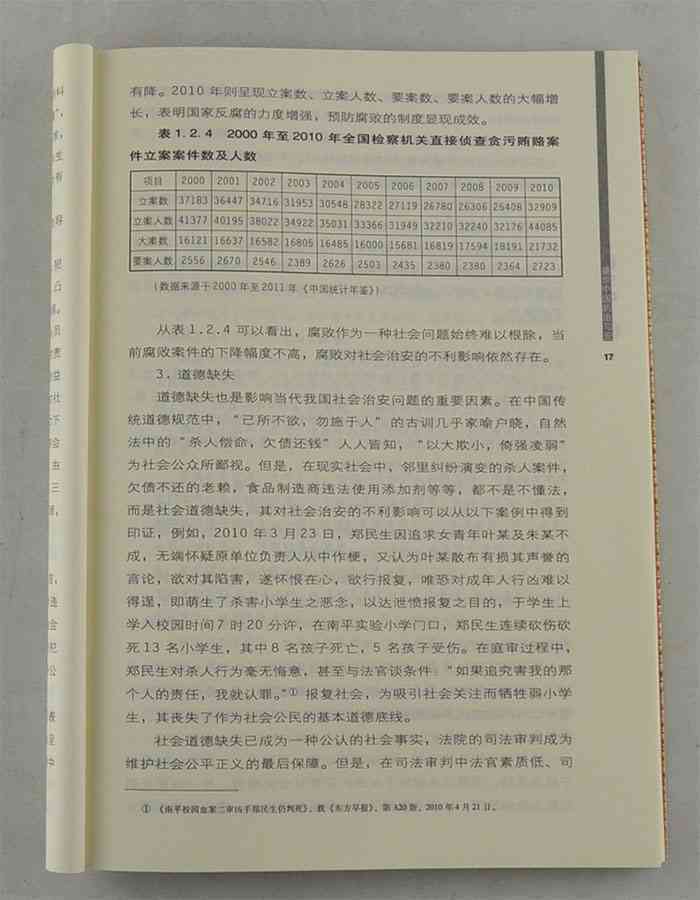 有降。2010 年则呈现立案数、立案人数、要案数、要案人数的大幅增
长，表明国家反腐的力度增强，预防腐败的制度显现成效。
表 1.2.4 2000 年至 2010 年全国检察机关直接侦查贪污贿赂案
件立案案件数及人数
项目 2000 2001 2002 2003 2004 2005 2006 2007 2008 2009 2010
立案数 37183 36447 34716 31953 30548 28322 27119 26780 26306 25408 32909
立案人数 41377 40195 38022 34922 35031 33366 31949 32210 32240 32176 44085
大案数 16121 16637 16582 16805 16485 16000 15681 16819 17594 18191 21732
要案人数 2556 2670 2546 2389 2626 2503 2435 2380 2380 2364 2723
(数据来源于 2000 年至 2011 年《中国统计年鉴》)
从表 1.2.4 可以看出，腐败作为一种社会问题始终难以根除，当
前腐败案件的下降幅度不高，腐败对社会治安的不利影响依然存在。
17
3. 道德缺失
道德缺失也是影响当代我国社会治安问题的重要因素。在中国传
统道德规范中，“己所不欲，勿施于人”的古训几乎家喻户晓，自然
法中的“杀人偿命，欠债还钱”人人皆知，“以大欺小，倚强凌弱”
为社会公众所鄙视。但是，在现实社会中，邻里纠纷演变的杀人案件，
欠债不还的老赖，食品制造商违法使用添加剂等等，都不是不懂法，
而是社会道德缺失，其对社会治安的不利影响可以从以下案例中得到
印证，例如，2010 年 3 月 23 日，郑民生因追求女青年叶某及朱某不
成，无端怀疑原单位负责人从中作梗，又认为叶某散布有损其声誉的
言论，欲对其陷害，遂怀恨在心，欲行报复，唯恐对成年人行凶难以
得逞，即萌生了杀害小学生之恶念，以达泄愤报复之目的，于学生上
学入校园时间 7 时 20 分许，在南平实验小学门口，郑民生连续砍伤砍
死 13 名小学生，其中 8 名孩子死亡，5 名孩子受伤。在庭审过程中，
郑民生对杀人行为毫无悔意，甚至与法官谈条件：“如果追究害我的那
个人的责任，我就认罪。”① 报复社会，为吸引社会关注而牺牲弱小学
生，其丧失了作为社会公民的基本道德底线。
社会道德缺失已成为一种公认的社会事实，法院的司法审判成为
维护社会公平正义的最后保障。但是，在司法审判中法官素质低、司
① 《南平校园血案二审凶手郑民生仍判死》，载《东方早报》，第 A20 版，2010 年 4 月 21 日。